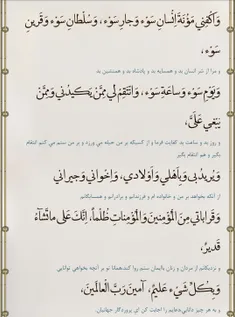 وَاكْفِنِي مَؤُنَةَ إِنْسَانِ سَوْءٍ وَجَارِ سَوْءٍ، وَسُلْطَانِ سَوْءٍ وَقَرِينِ
سَوْءٍ،
و مرا از شر انسان بد و همسایه بد و پادشاه بد و همنشین بد
وَيَوْمِ سَوْءٍ وَسَاعَةِ سَوْءٍ، وَانْتَقِمْ لِي مِمَّنْ يَكِيدُنِي وَمِمَّنْ
يَبْغِي عَلَيَّ،
و روز بد و ساعت بد کفایت فرما و از کسیکه بر من حیله می ورزد و بر من ستم می کنم انتقام
بگیر و هم انتقام بگیر
وَيُرِيدُ بِي وَبِأَهْلِي وَأَوْلَادِي، وَإِخْوَانِي وَجِيرَانِي
از آنکه بخواهد بر من و خانواده ام و فرزندانم و برادرانم و همسایگانم
وَقَرَابَاتِي مِنَ الْمُؤْمِنِينَ وَالْمُؤْمِنَاتِ ظُلْماً، إِنَّكَ عَلَى مَا تَشَاءُ
قَدِيرٌ،
و نزدیکانم از مردان و زنان باایمان ستم روا کند همانا تو بر آنچه بخواهی توانایی
وَبِكُلِّ شَيْءٍ عَلِيمٌ، آمِينَ رَبَّ الْعَالَمِينَ،
و به هر چیز دانایی دعایم را اجابت کن ای پروردگار جهانیان.